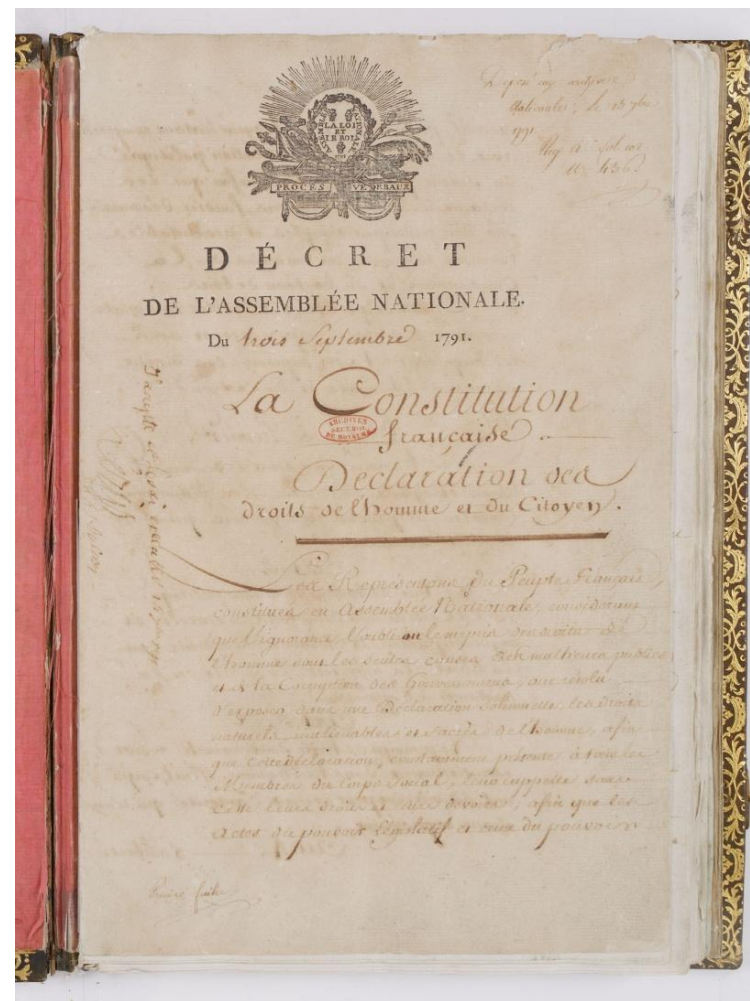 Déposé aux archives
Nationales, le
1791
LA LOI
ET
LE ROI
PROCÈS VERBAUX
DÉCRET
DE L'ASSEMBLÉE NATIONALE.
Du trois Septembre 1791.
La Constitution
française.
ARCHIVES
DU ROYAUME
Déclaration des
droits de l'homme et du Citoyen.
Les Représentans du Peuple Français,
constitués en Assemblée Nationale, considérant
que l'ignorance, l'oubli ou le mépris des droits de
l'homme sont les seules causes des malheurs publics
et de la Corruption des Gouvernemens, ont résolu
d'exposer, dans une Déclaration solennelle, les droits
naturels, inaliénables et sacrés de l'homme, afin
que cette déclaration, constamment présente à tous les
Membres du Corps Social, leur rappelle sans
cesse leurs droits et leurs devoirs; afin que les
Actes du pouvoir législatif et ceux du pouvoir